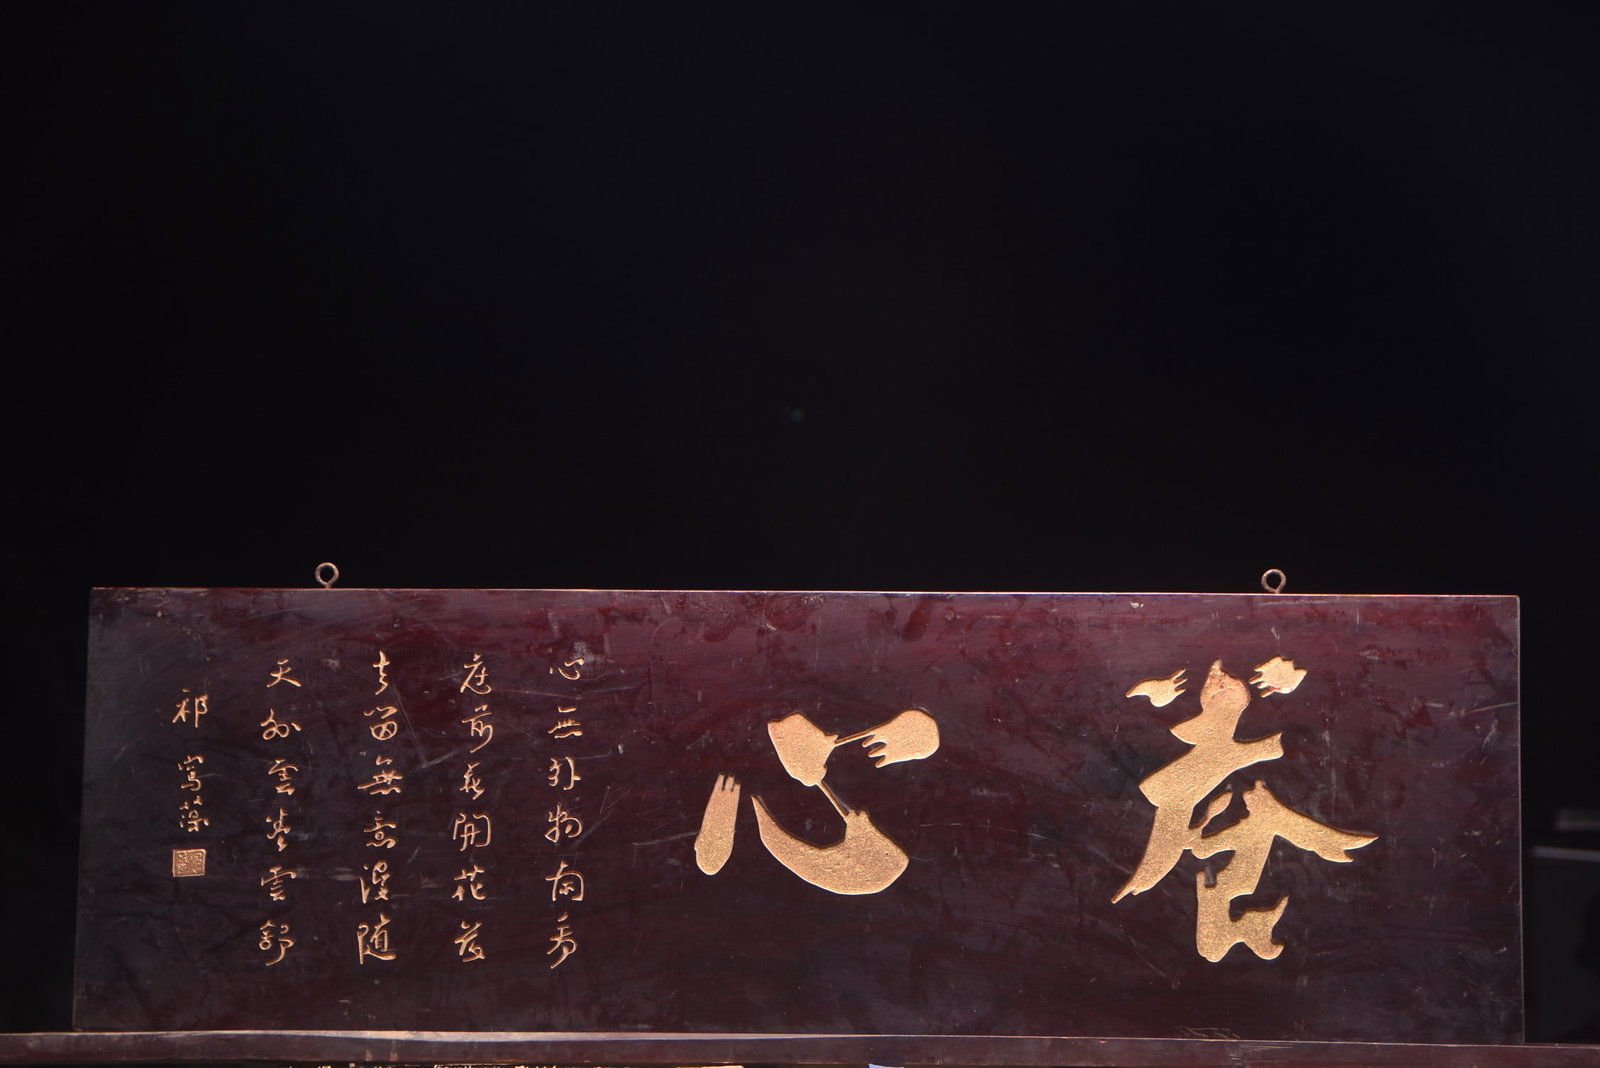 養心
心無外物看
庭前花開花落
去留無意漫随
天外雲卷雲舒
祁寯藻